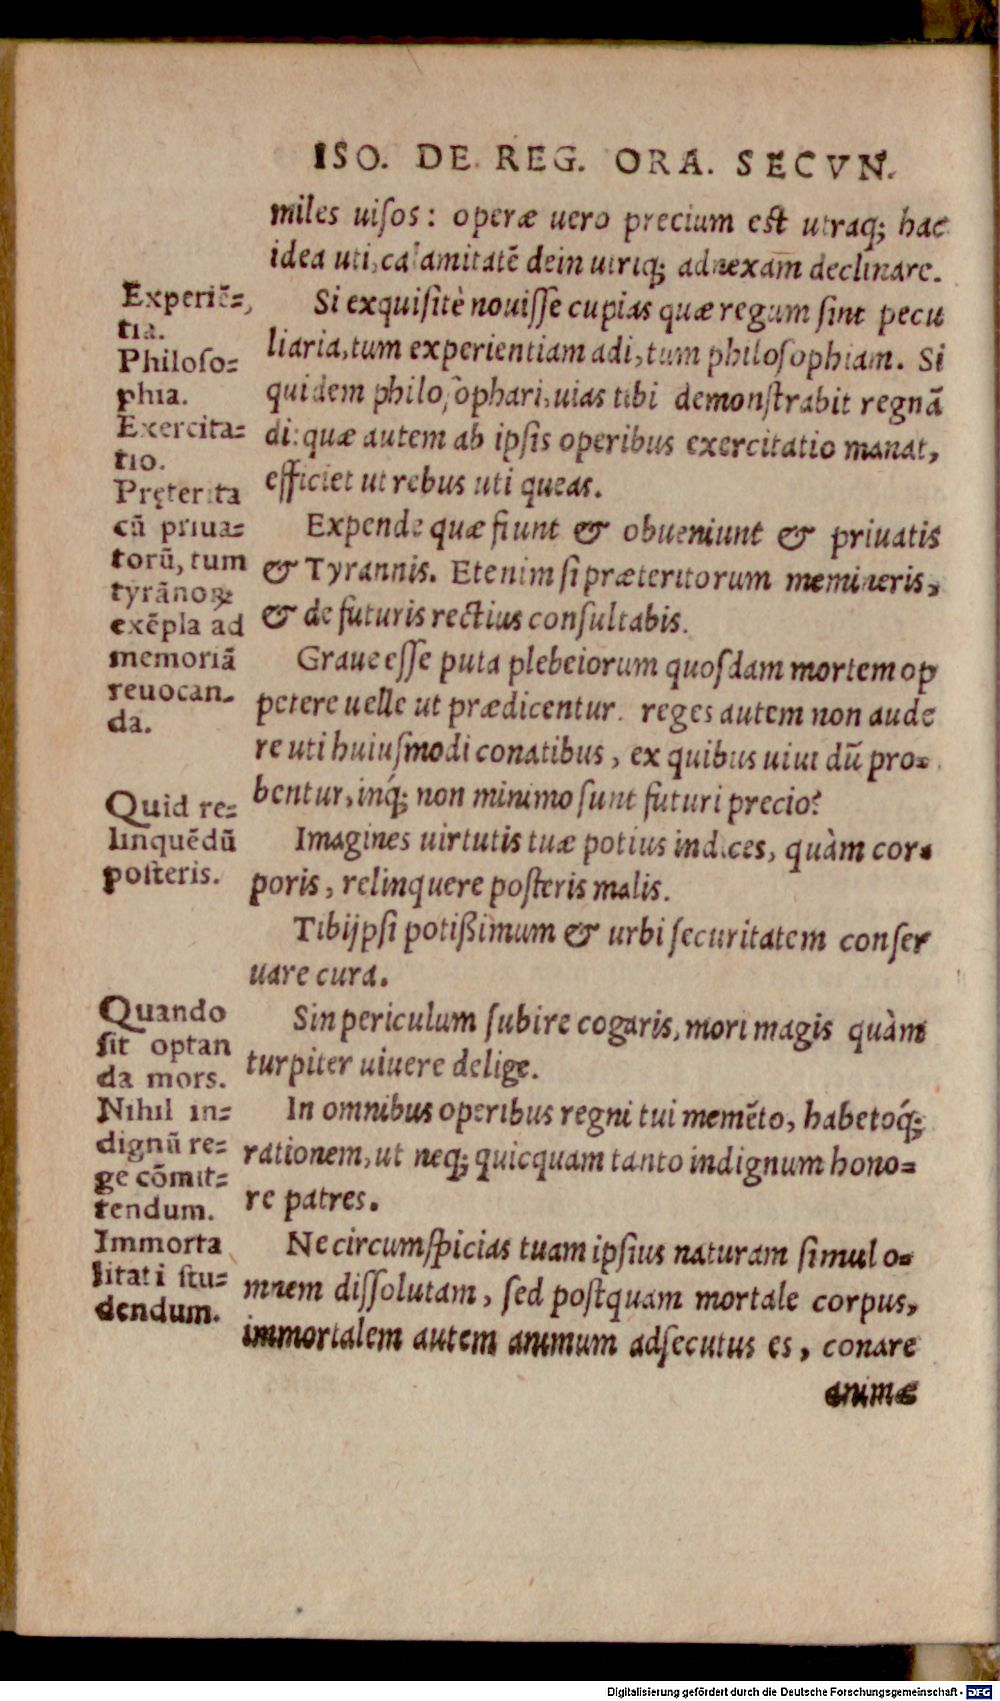 ISO. DE. REG. ORA. SECVN.
miles uiſos: operæ uero precium eſt utraq; hac
idea uti, calamitatẽ dein utriq; adnexam declinare.
Experiẽ-
tia.
Philoſo-
phia.
Exercita-
tio.
Pręterita
cũ priua-
torũ, tum
tyrãnoꝝ
exẽpla ad
memoriã
reuocan-
da.
Si exquiſitè nouiſſe cupias quæ regum ſint pecu
liaria, tum experientiam adi, tum philoſophiam. Si
quidem philoſophari, uias tibi demonſtrabit regnã
di: quæ autem ab ipſis operibus exercitatio manat,
efficiet ut rebus uti queas.
Expende quæ fiunt & obueniunt & priuatis
& Tyrannis. Etenim ſi præteritorum memineris,
& de futuris rectius conſultabis.
Graue eſſe puta plebeiorum quoſdam mortem op
petere uelle ut prædicentur. reges autem non aude
re uti huiuſmodi conatibus, ex quibus uiui dũ pro-
bentur, inq́; non minimo ſunt futuri precio?
Quid re-
linquẽdũ
poſteris.
Imagines uirtutis tuæ potius indices, quàm cor-
poris, relinquere poſteris malis.
Tibijpſi potißimum & urbi ſecuritatem conſer
uare cura.
Quando
ſit optan
da mors.
Sin periculum ſubire cogaris, mori magis quàm
turpiter uiuere delige.
Nihil in-
dignũ re-
ge cõmit-
tendum.
In omnibus operibus regni tui memẽto, habetoq́;
rationem, ut neq; quicquam tanto indignum hono-
re patres.
Immorta
litati ſtu-
dendum.
Ne circumſpicias tuam ipſius naturam ſimul o-
mnem diſſolutam, ſed poſtquam mortale corpus,
immortalem autem animum adſecutus es, conare
animæ
Digitalisierung gefördert durch die Deutsche Forschungsgemeinschaft - DFG